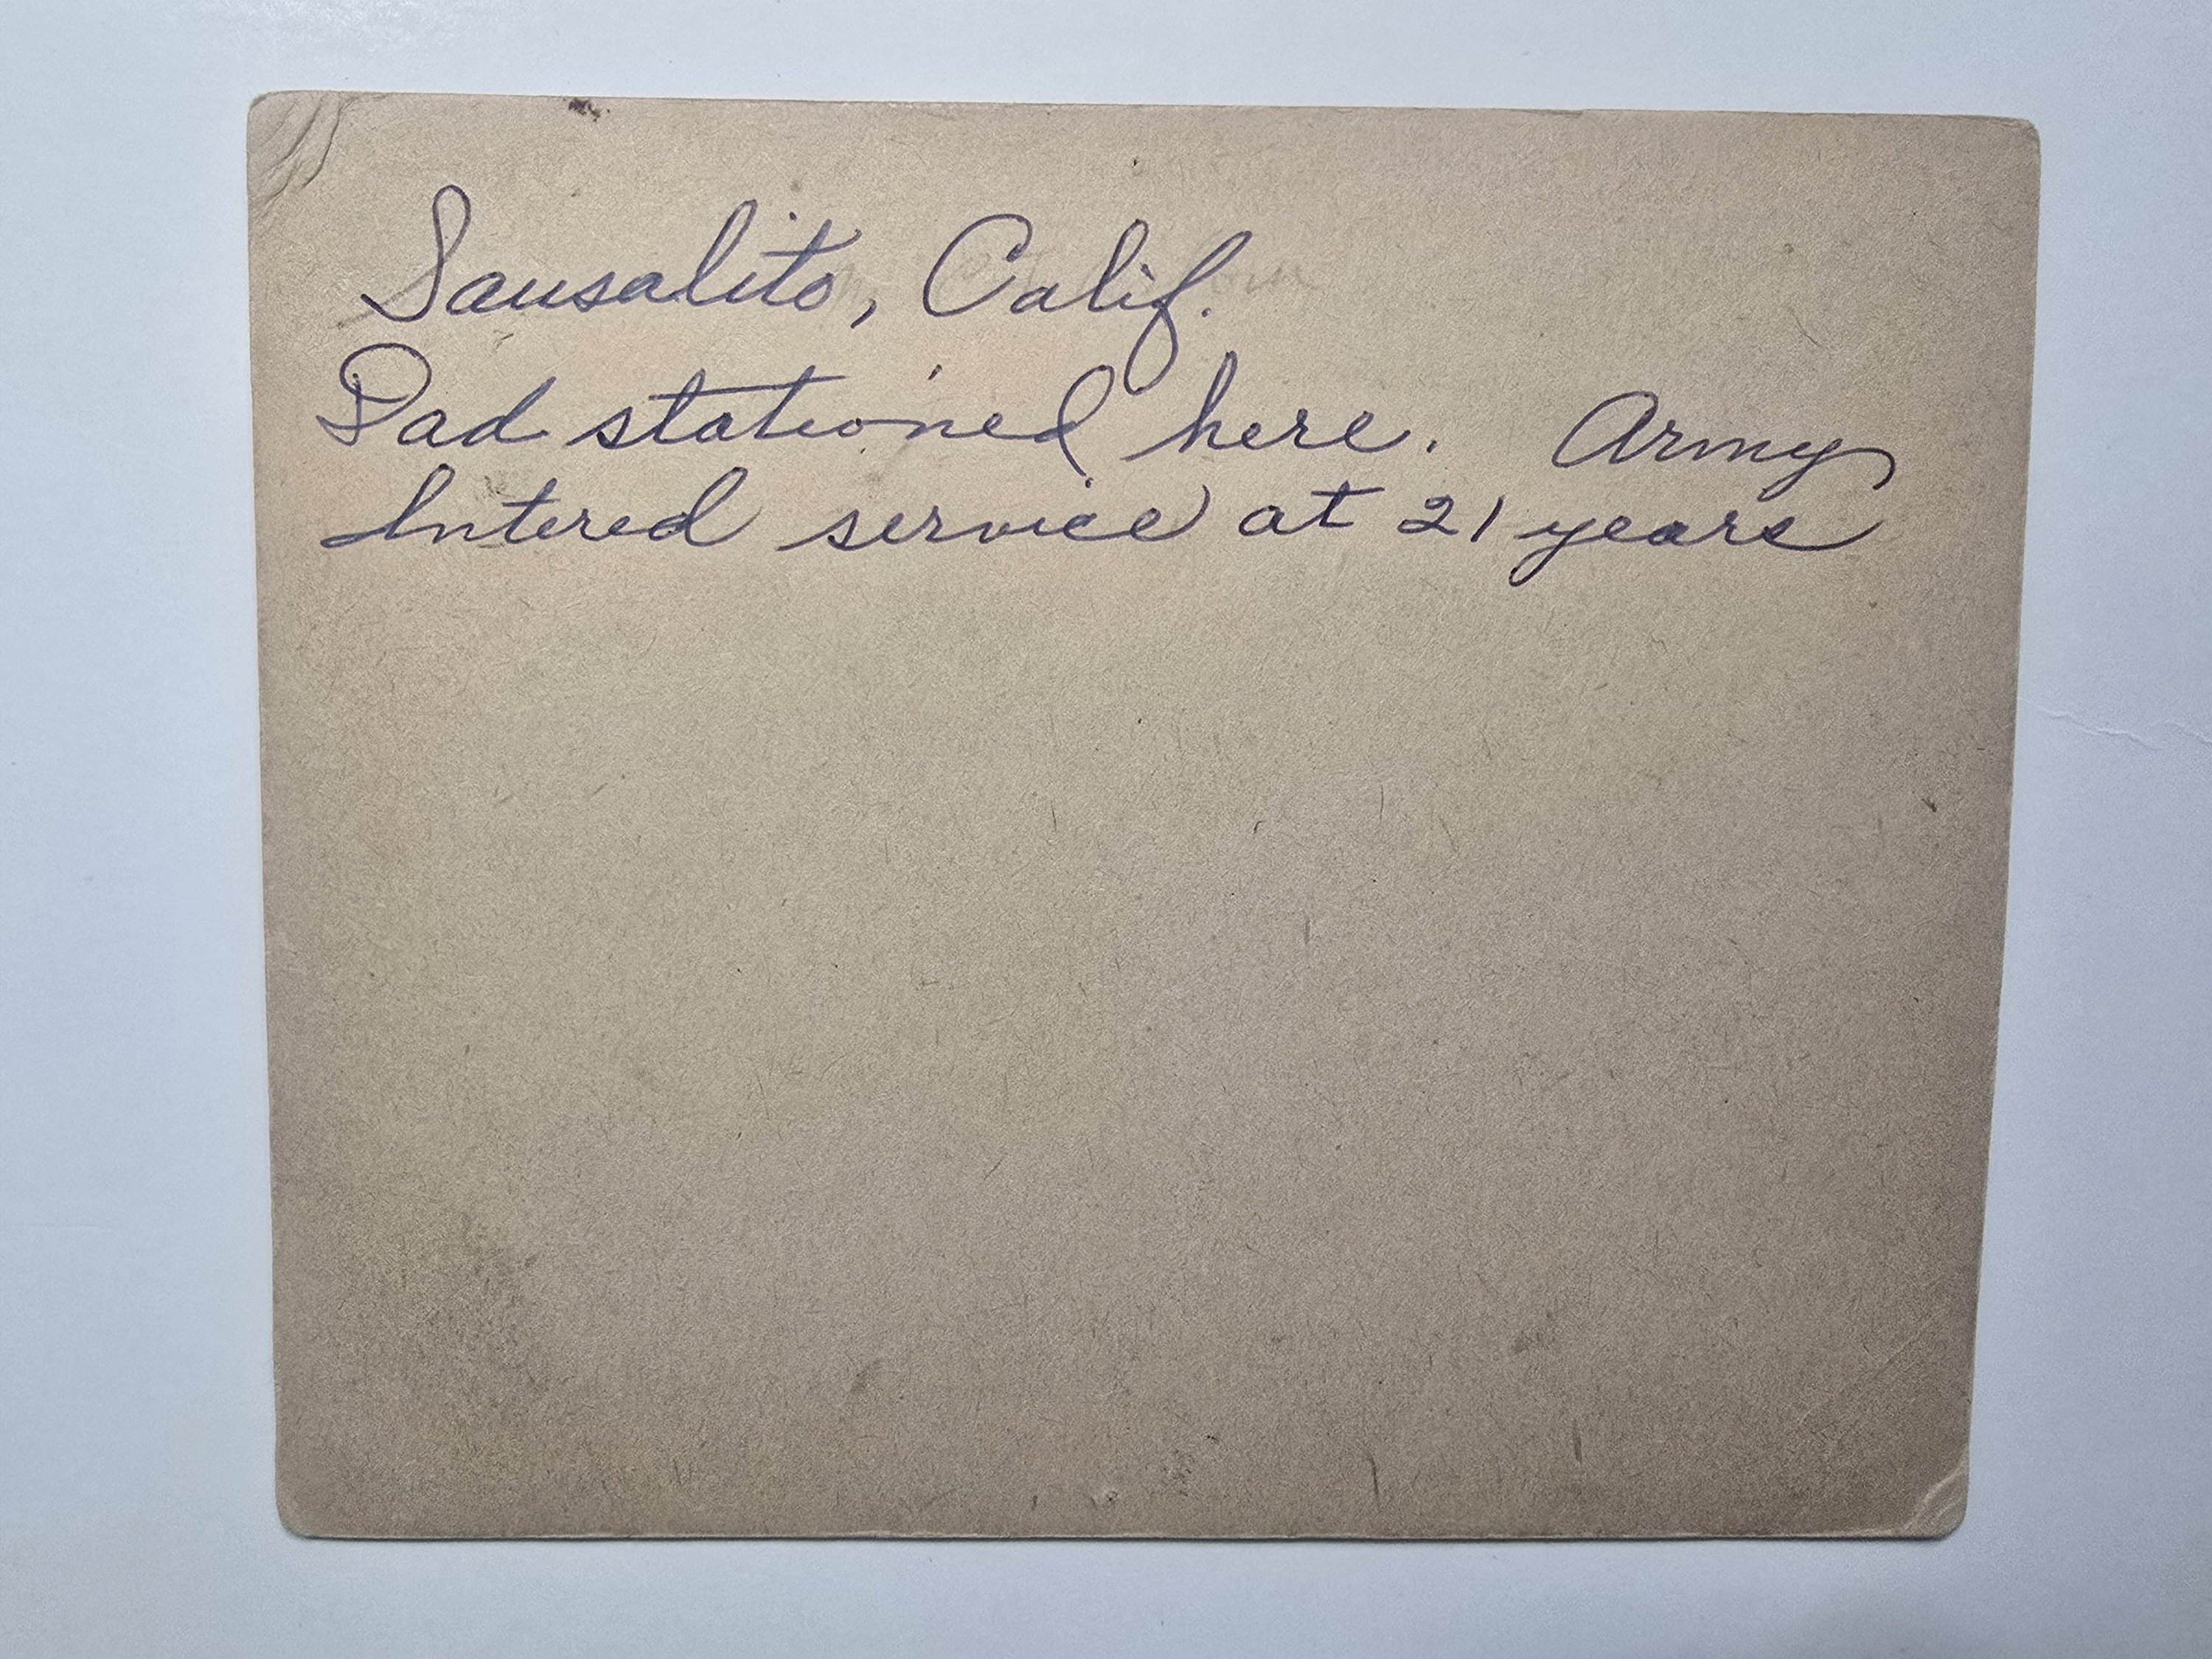 Sausalito, Calif.
Dad stationed here. Army
Intered service at 21 years